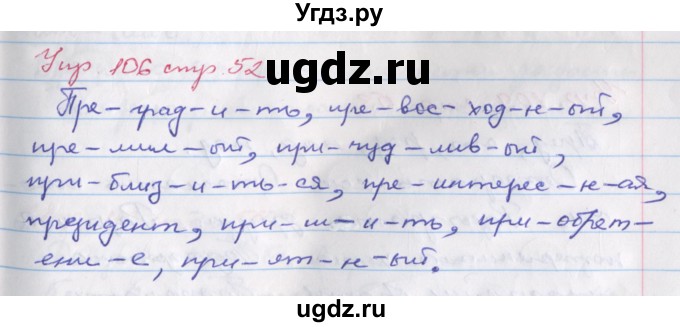 Угдз.ру
Упр. 106 стр. 52
ugdz.ru
Пре-град-и-ть, пре-вос-ход-н-ый,
пре-мил-ый, при-чуд-лив-ый,
при-близ-и-ть-ся, пре-интерес-н-ая,
президент, при-ш-и-ть, при-обрет-
ени-е, при-ят-н-ый.
ugdz.ru